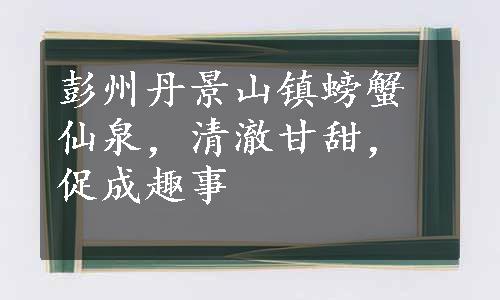 彭州丹景山镇螃蟹
仙泉，清澈甘甜，
促成趣事